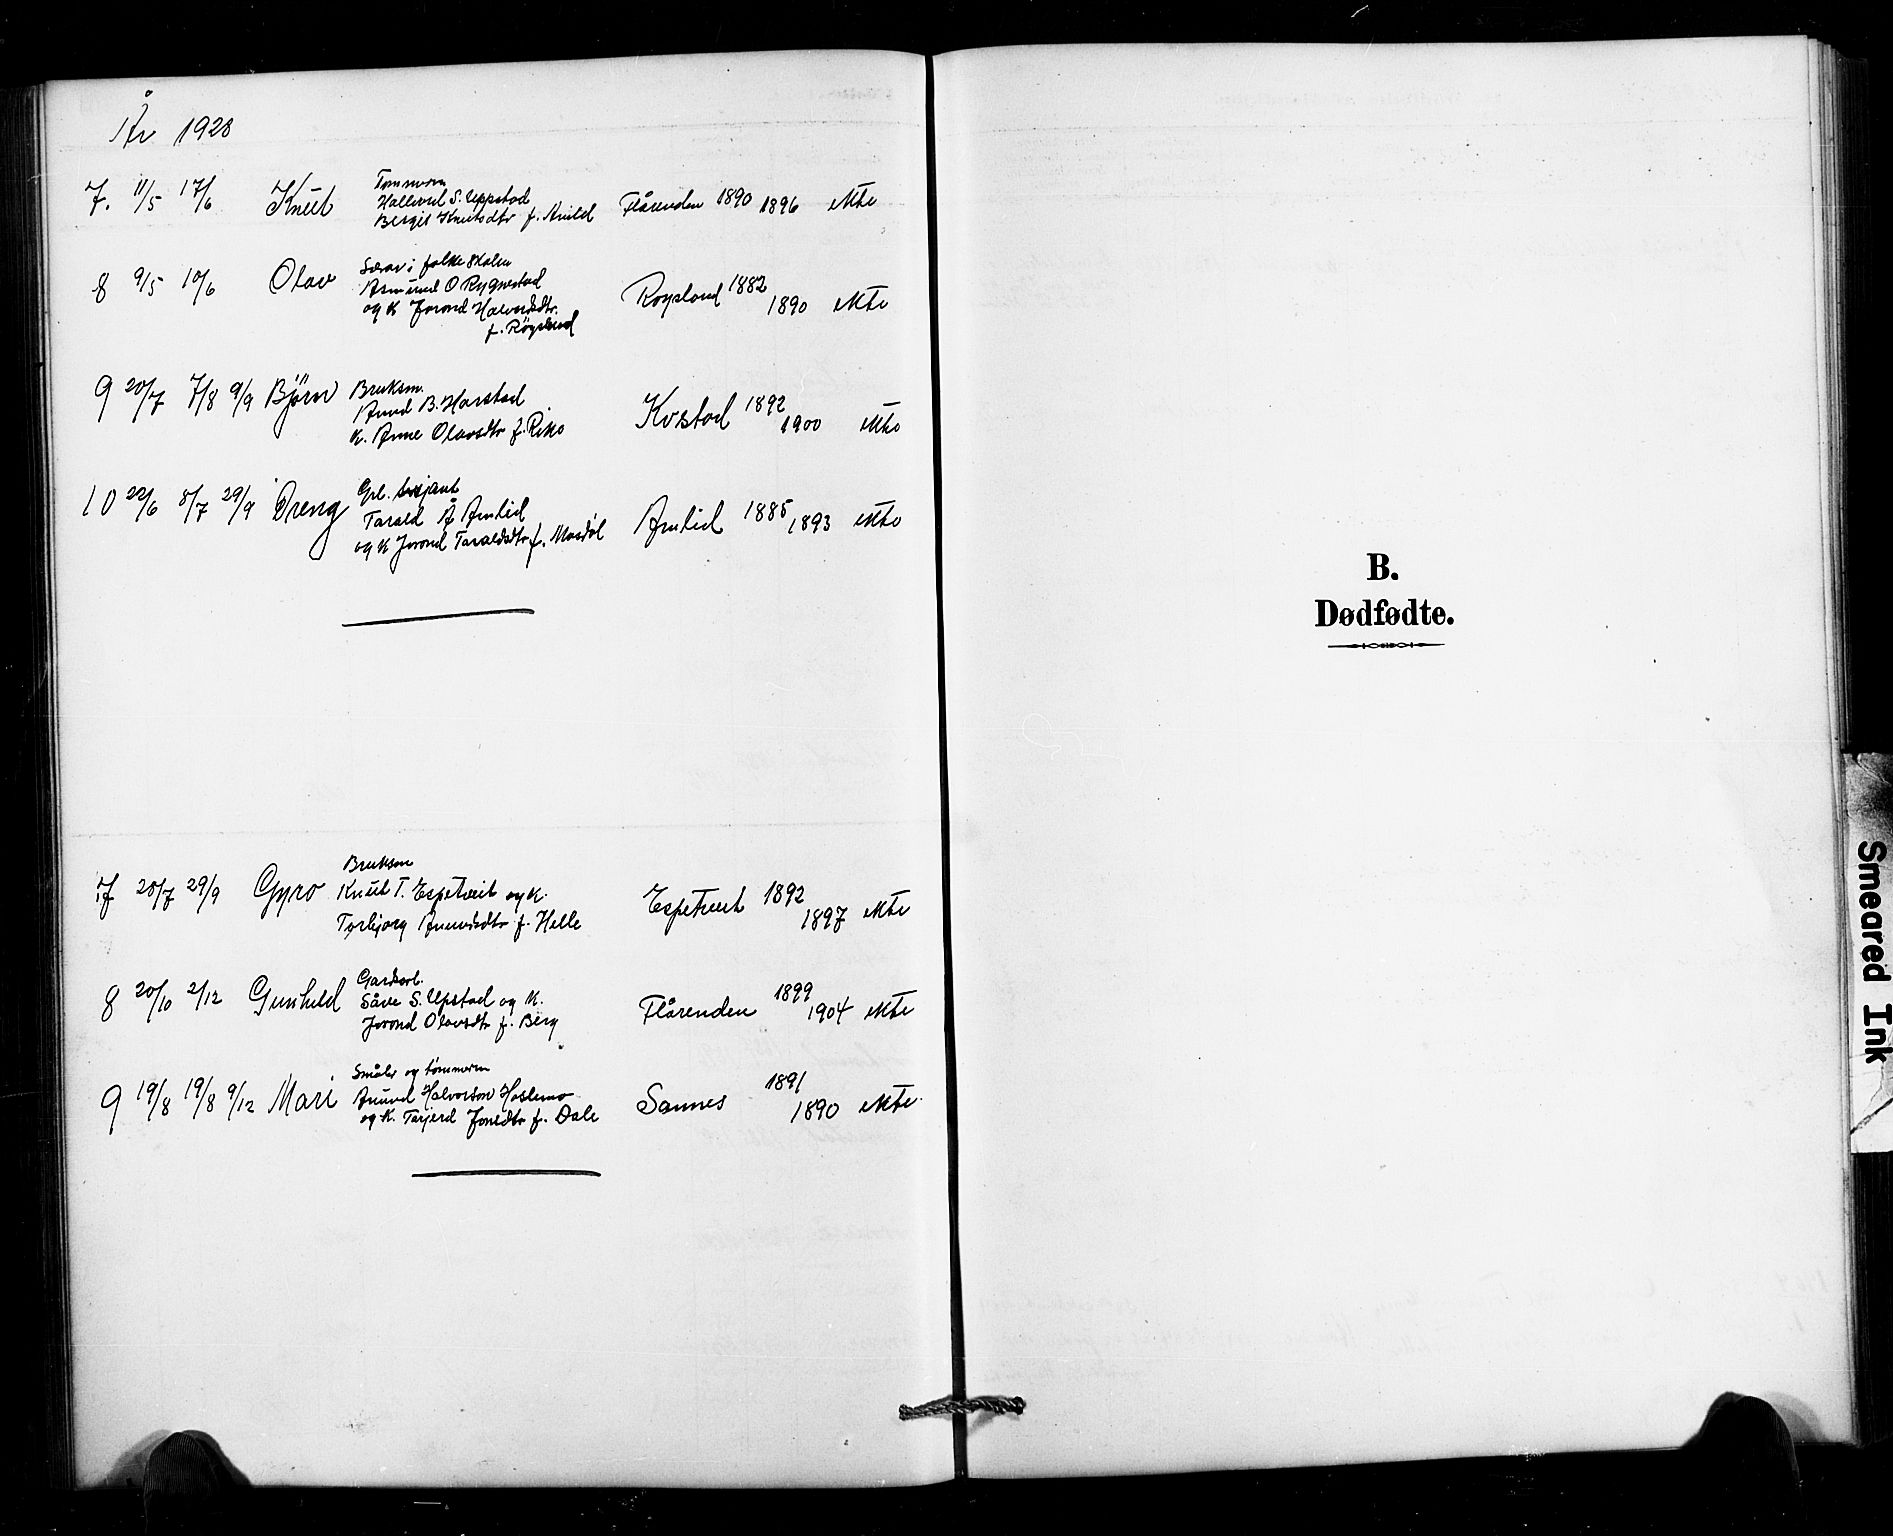 År 1928
7. 11/5 17/6 Knut Tømmerm. Hallvard S. Uppstad Bergit Knutsdtr f. Amlid Flårenden 1890 1896 ekte
8 9/5 10/6 Olav Lærar i folkeskolen Asmund O Rygnestad og k Jorond Halvorsdtr. f. Røysland Roysland 1882 1890 ekte
9 20/7 7/8 9/9 Bjørn Bruksm. Anund B. Harstad k. Anne Olavsdtr f. Rike Kvstad 1892 1900 ekte
10 22/6 8/7 29/9 Dreng Gpl. serjant Tarald Å Amlid og k Jorond Taraldsdtr f. Mosdøl Amlid 1885 1893 ekte
7 28/7 29/9 Gyro Bruksm Knut T. Espetveit og k. Torbjorg Anundsdtr f. Helle Espetveit 1892 1897 ekte
8 20/10 2/12 Gunhild Gardsarb. Såve S. Upstad og k. Jorond Olavsdtr f. Berg Flårenden 1899 1904 ekte
9 19/8 19/8 9/12 Mari Småbr og tømmerm Anund Halvorson Haslemo og k. Tarjerd Jonsdtr f. Dale Sannes 1891 1890 ekte
B.
Dødfødte.
Smeared Ink